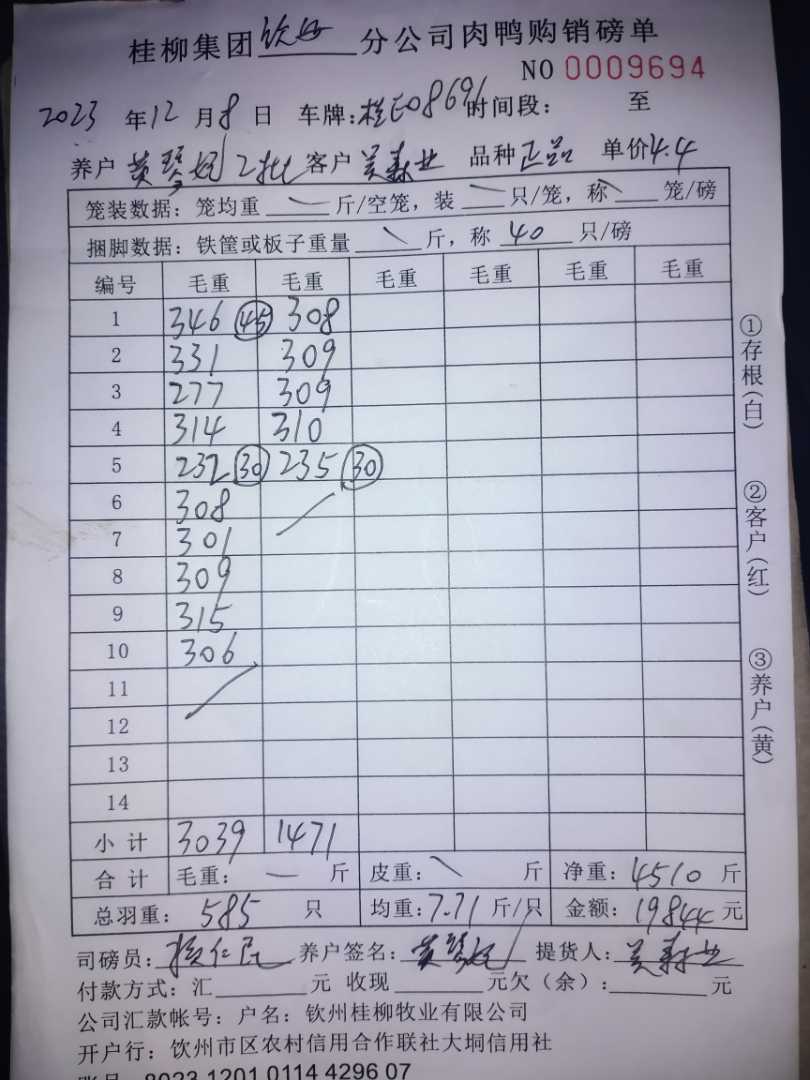 桂柳集团钦州分公司肉鸭购销磅单
NO 0009694
2023年12月8日 车牌:桂E08691时间段: 至
养户 黄琴 2批 客户 吴森业 品种正品 单价4.4
笼装数据: 笼均重 斤/空笼, 装 只/笼, 称 笼/磅
捆脚数据: 铁筐或板子重量 斤, 称 40 只/磅
编号 毛重 毛重 毛重 毛重 毛重 毛重
1 346 45 308
2 331 309
3 277 309
4 314 310
5 232 30 235 30
6 308
7 301
8 309
9 315
10 306
11
12
13
14
小计 3039 1471
合计 毛重: 斤 皮重: 斤 净重: 4510 斤
总羽重: 585 只 均重: 7.71 斤/只 金额: 19844 元
司磅员: 仁民 养户签名: 黄琴 提货人: 吴森业
付款方式: 汇 元 收现 元欠(余): 元
公司汇款帐号: 户名: 钦州桂柳牧业有限公司
开户行: 钦州市区农村信用合作联社大垌信用社
账号 8023 1201 0114 4296 07
①存根(白)
②客户(红)
③养户(黄)